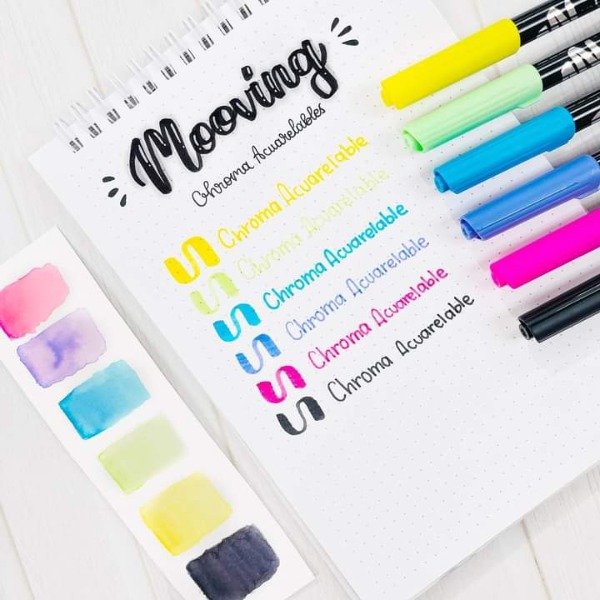 Mooving
Chroma Acuarelables
Chroma Acuarelable
Chroma Acuarelable
Chroma Acuarelable
Chroma Acuarelable
Chroma Acuarelable
Chroma Acuarelable